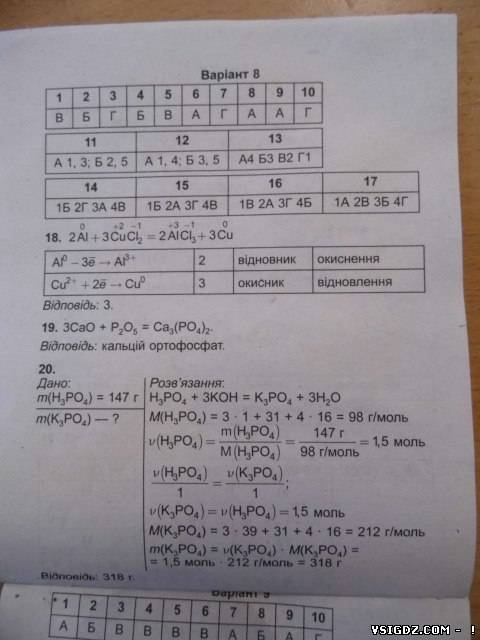 Варіант 8
1 2 3 4 5 6 7 8 9 10
В Б Г Б В А Г А А Г
11 12 13
А 1, 3; Б 2, 5 А 1, 4; Б 3, 5 А4 Б3 В2 Г1
14 15 16 17
1Б 2Г 3А 4В 1Б 2А 3Г 4В 1В 2А 3Г 4Б 1А 2В 3Б 4Г
0 +2 −1 +3 −1 0
18. 2Al + 3CuCl₂ = 2AlCl₃ + 3Cu
Al⁰ − 3ē → Al³⁺ 2 відновник окиснення
Cu²⁺ + 2ē → Cu⁰ 3 окисник відновлення
Відповідь: 3.
19. 3CaO + P₂O₅ = Ca₃(PO₄)₂.
Відповідь: кальцій ортофосфат.
20.
Дано: Розв'язання:
m(H₃PO₄) = 147 г H₃PO₄ + 3KOH = K₃PO₄ + 3H₂O
m(K₃PO₄) — ? M(H₃PO₄) = 3 · 1 + 31 + 4 · 16 = 98 г/моль
ν(H₃PO₄) = m(H₃PO₄) / M(H₃PO₄) = 147 г / 98 г/моль = 1,5 моль
ν(H₃PO₄) / 1 = ν(K₃PO₄) / 1;
ν(K₃PO₄) = ν(H₃PO₄) = 1,5 моль
M(K₃PO₄) = 3 · 39 + 31 + 4 · 16 = 212 г/моль
m(K₃PO₄) = ν(K₃PO₄) · M(K₃PO₄) =
= 1,5 моль · 212 г/моль = 318 г
Відповідь: 318 г.
Варіант 9
1 2 3 4 5 6 7 8 9 10
А Б В В В А Б Б
VSIGDZ.COM - !